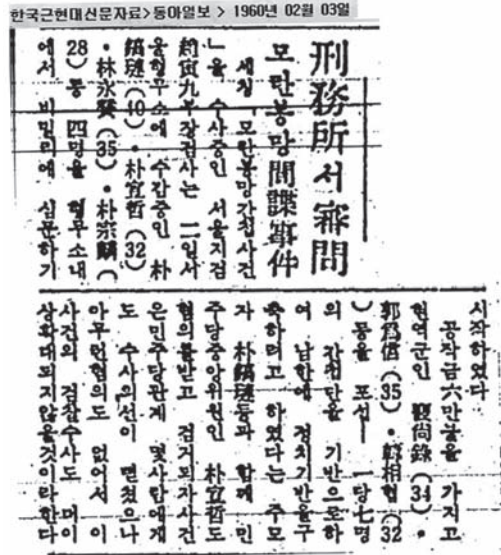 한국근현대신문자료>동아일보 > 1960년 02월 03일
刑務所서審問
모란봉망間諜事件
세칭「모란봉망간첩사건
」을 수사중인 서울지검
부장검사는 二일서
울형무소에 수감중인 朴
(40)·朴宜哲(32)
·林永 (35)·朴宗麟(
28)등 四명을 형무소내
에서 비밀리에 심문하기
시작하였다
공작금六만불을 가지고
현역군인 (34)·
(35)· (32
)등을 포섭—一당七명
의 간첩단을 기반으로하
여 남한에 정치기반을구
축하려고 하였다는 주모
자 등과 함께 민
주당중앙위원인 朴宜哲도
혐의를받고 검거되자사건
은민주당관계 몇사람에게
도 수사의선이 뻗쳤으나
아무런혐의도 없어서 이
사건의 검찰수사도 더이
상확대되지않을것이라한다